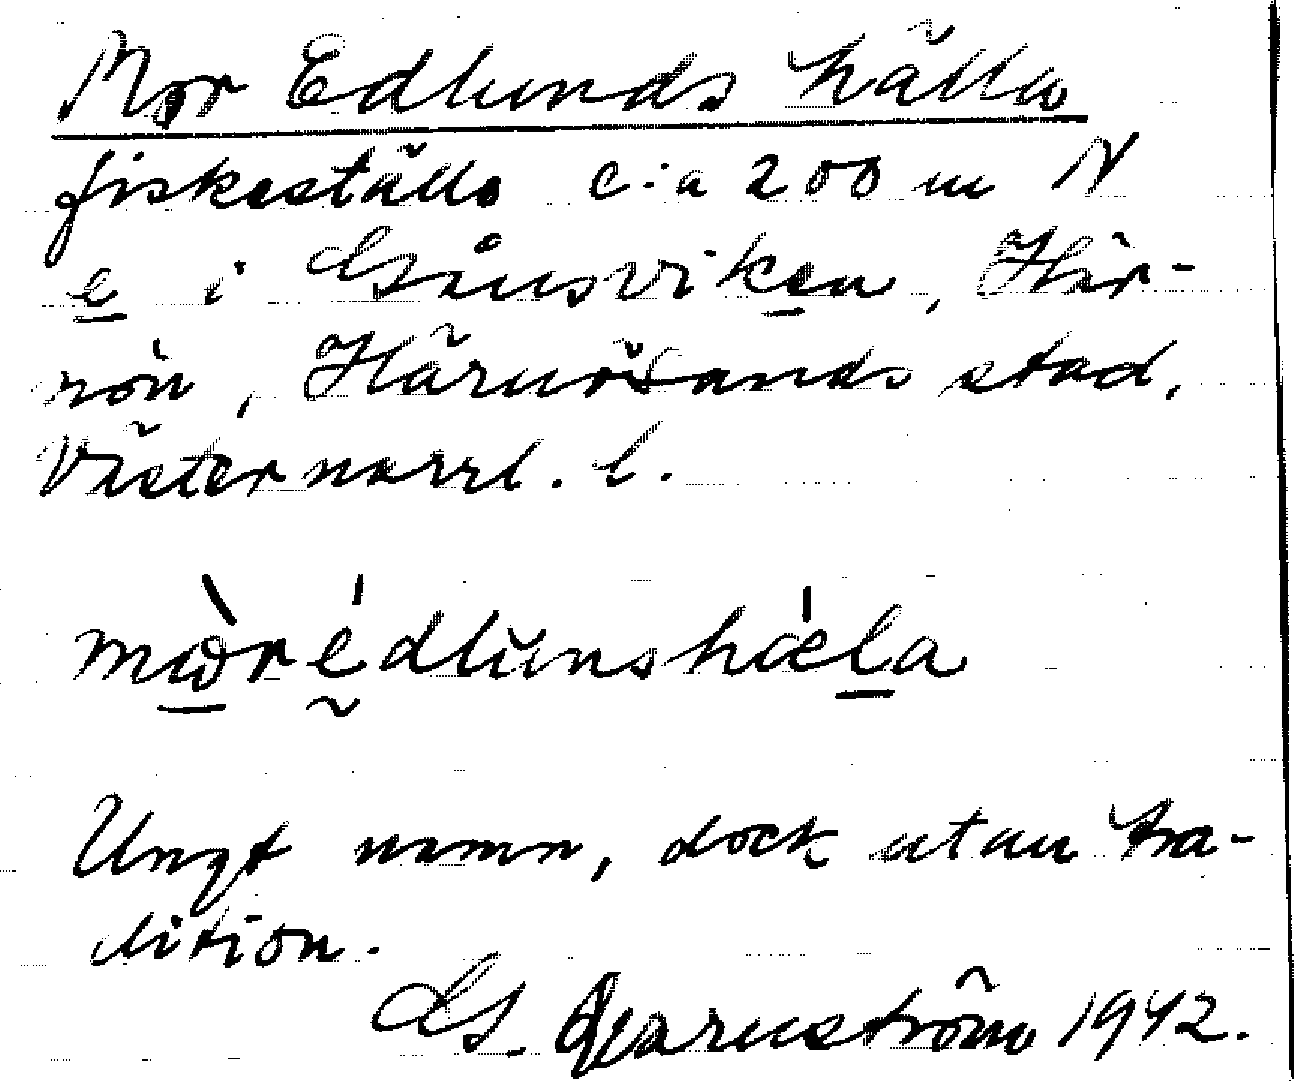 Mor Edlunds hälla
fiskeställe c:a 200 m N
e i Gånsviken, Här-
nön, Härnösands stad,
Västernorrl. l.
mωr édlunshæla
Ungt namn, dock utan tra-
dition.
G. Qvarnström 1942.